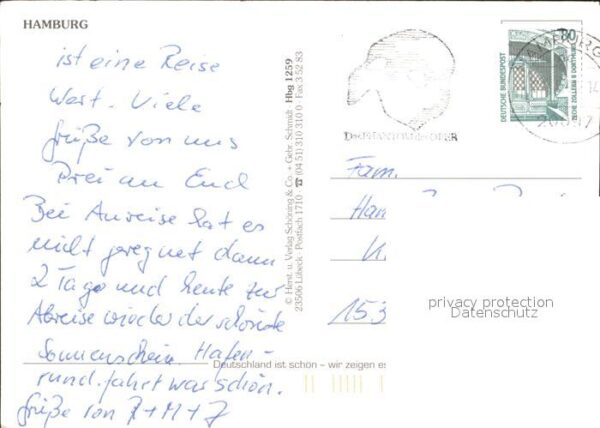 HAMBURG
ist eine Reise
Wert. Viele
Grüße von uns
Drei an Euch
Bei Anreise hat es
nicht geregnet dann
2 Tage und heute zur
Abreise wieder der schönste
Sonnenschein. Hafen-
rundfahrt war schön.
Grüße von R+M+J
© Herst. u. Verlag Schöning & Co. + Gebr. Schmidt · Hbg 1259
23506 Lübeck · Postfach 1710 · ☎ (04 51) 310 310 0 · Fax 3 52 83
Deutschland ist schön – wir zeigen es
Das PHANTOM der OPER
DEUTSCHE BUNDESPOST
80
ZECHE ZOLLERN II DORTMUND
HAMBURG
14
Fam.
Ham
153
privacy protection
Datenschutz